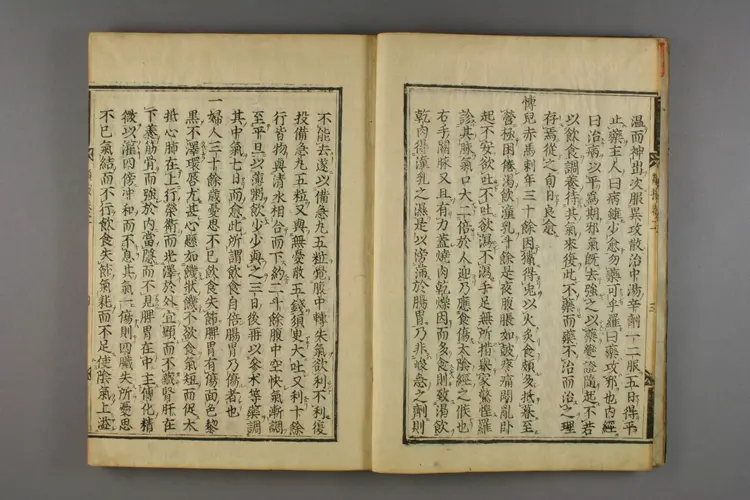 温而神出次服異攻散治中湯辛劑一二服五日得平
止藥主人曰病雖少愈勿藥可乎羅曰藥攻邪也内經
曰治病以平爲期邪氣既去強之以藥變證隨起不若
以飲食調養待其氣來復此不藥而藥不治而治之理
存焉從之旬日良愈
博兒赤馬剌年三十餘因獵得兎以火炙食頗多抵暮至
營極困倦湯飲潼乳斗餘是夜腹脹如皷疼痛悶亂卧
起不安欲吐不吐欲瀉不瀉手足無所措舉家驚惶羅
診其脉氣口大二倍於人迎乃應食傷太陰經之候也
右手關脉又且有力蓋燒肉乾燥因而多食則致渴飲
乾肉得潼乳之濕是以滂滿於腸胃乃非峻急之劑則
不能去遂以備急丸五粒覺腹中轉失氣欲利不利復
投備急丸五粒又與無憂散五錢須臾大吐又利十餘
行皆物與清水相合而下約二斗餘腹中空快氣漸調
至平旦以薄粥飲少少與之三日後再以參朮等藥調
其中氣七日而愈此所謂飲食自倍腸胃乃傷者也
一婦人三十餘歲憂思不已飲食失節脾胃有傷面色黧
黒不澤環唇尤甚心懸如饑狀饑不欲食氣短而促大
抵心肺在上行榮衞而光澤於外宜顯而不藏腎肝在
下養筋骨而強於内當隱而不見脾胃在中主傳化精
微以灌四傍沖和而不息其氣一傷則四臟失所憂思
不已氣結而不行飲食失節氣耗而不足使陰氣上溢